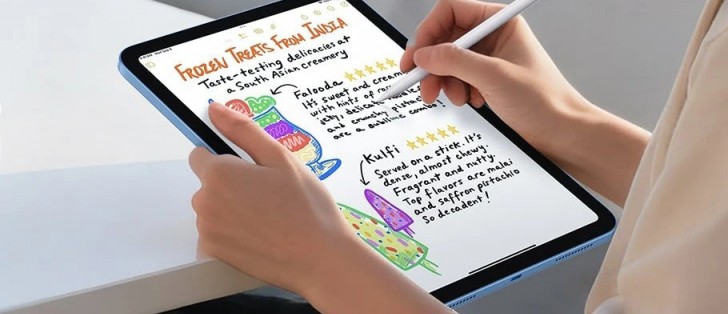 FROZEN TREATS FROM INDIA
Taste-testing delicacies at
a South Asian creamery
Falooda
It's sweet and cream
with hints of
jelly, delicate
and crunchy pistac
are a sublime combo!
Kulfi
Served on a stick. It's
dense, almost chewy.
Fragrant and nutty.
Top flavors are malai
and saffron pistachio
So decadent!